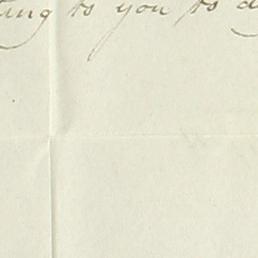 ting to you to d